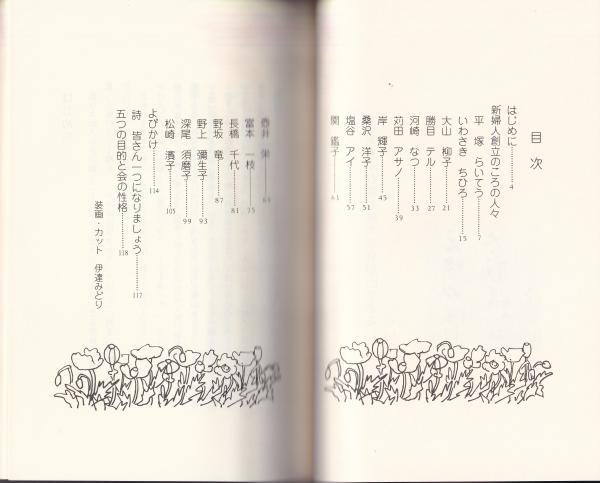 目次
はじめに……………4
新婦人創立のころの人々
平塚 らいてう……………7
いわさき ちひろ……………15
大山 柳子……………21
勝目 テル……………27
河崎 なつ……………33
苅田 アサノ……………39
岸 輝子……………45
桑沢 洋子……………51
塩谷 アイ……………57
関 鑑子……………61
壺井 栄……………69
富本 一枝……………75
長橋 千代……………81
野坂 竜……………87
野上 彌生子……………93
深尾 須磨子……………99
松崎 濱子……………105
よびかけ……………114
詩 皆さん一つになりましょう……………117
五つの目的と会の性格……………118
装画・カット 伊達みどり